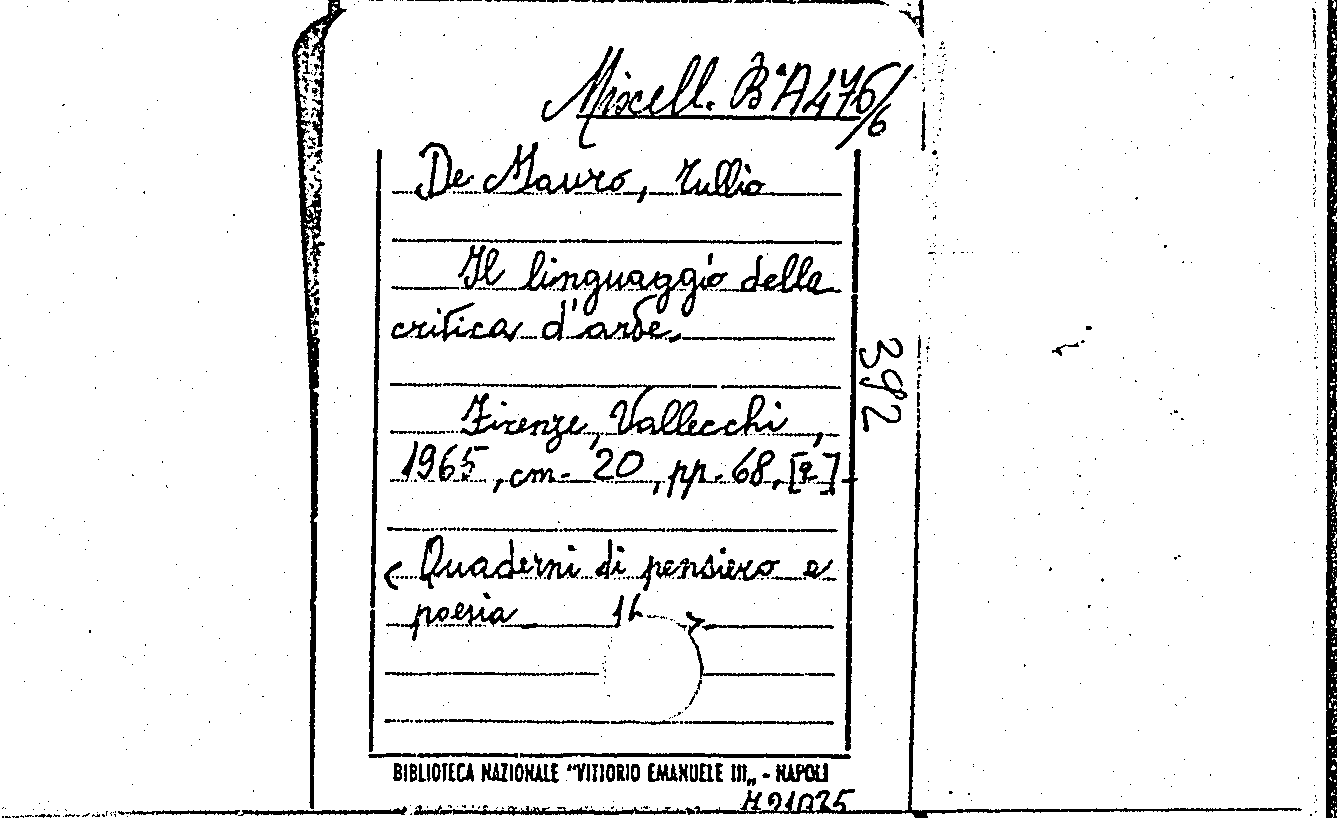 Miscell. Bª A 476/6
De Mauro, Tullio
Il linguaggio della
critica d'arte.
Firenze, Vallecchi,
1965, cm. 20, pp. 68, [2].
392
< Quaderni di pensiero e
poesia >
BIBLIOTECA NAZIONALE "VITTORIO EMANUELE III„ - NAPOLI